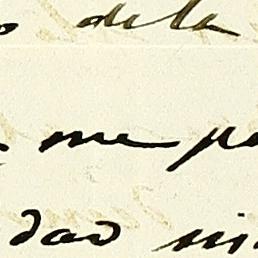 de la
me pa
dad ni